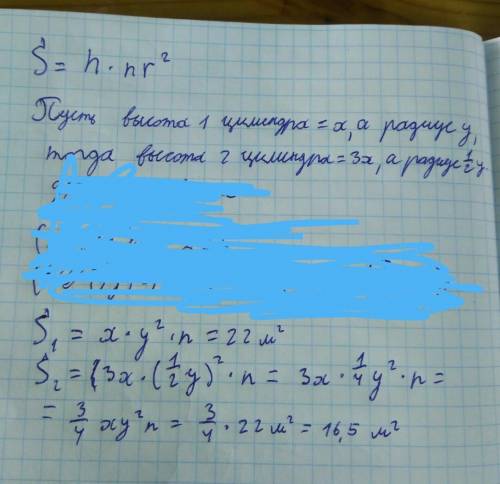 S = h · пr²
Пусть высота 1 цилиндра = x, а радиус y,
тогда высота 2 цилиндра = 3x, а радиус ½y.
S₁ = x · y² · п = 22 м²
S₂ = (3x · (½y)² · п = 3x · ¼y² · п =
= ¾ xy²п = ¾ · 22 м² = 16,5 м²